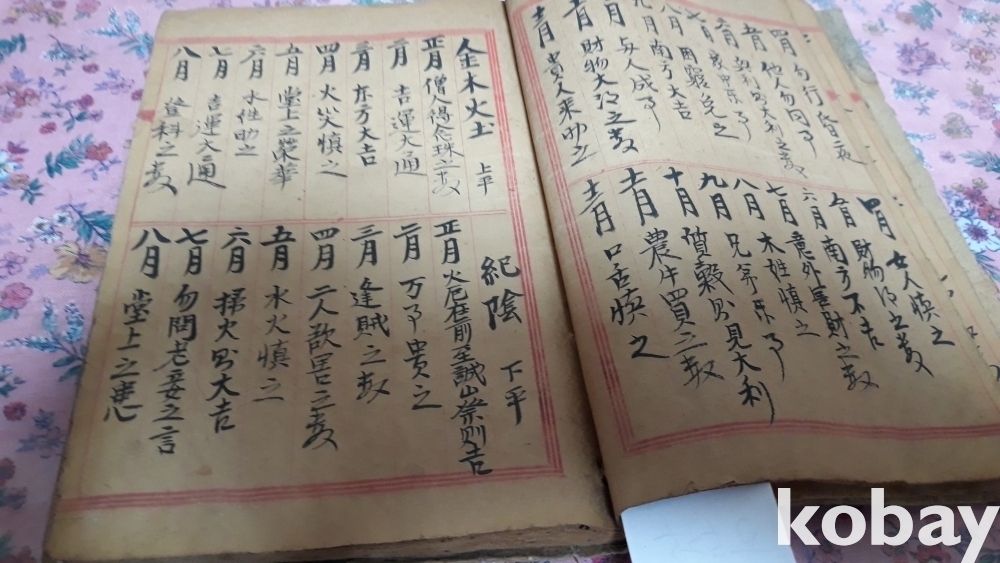 四月 勿行昏夜
五月 他人勿同事
八月 困窮免之
九月 南方大吉
月 与人成事
十一月 財物大得之数
十二月 貴人來助之
四月 女人慎之
五月 財物得之数
六月 南方不吉
七月 意外害財之数
八月 木姓慎之
九月 兄弟
十月 質穀則見大利
十一月 農牛買之数
十二月 口舌慎之
金木火土 上平
正月 僧人得念珠之数
二月 吉運大通
三月 东方大吉
四月 火災慎之
五月 堂上之榮華
六月 水姓助之
七月 吉運大通
八月 登科之数
紀陰 下平
正月 火厄在前至誠山祭則吉
二月 万事貴之
三月 逢賊之数
四月 二人欲害之数
五月 水火慎之
六月 掃火則大吉
七月 勿聞老妄之言
八月 堂上之患
kobay